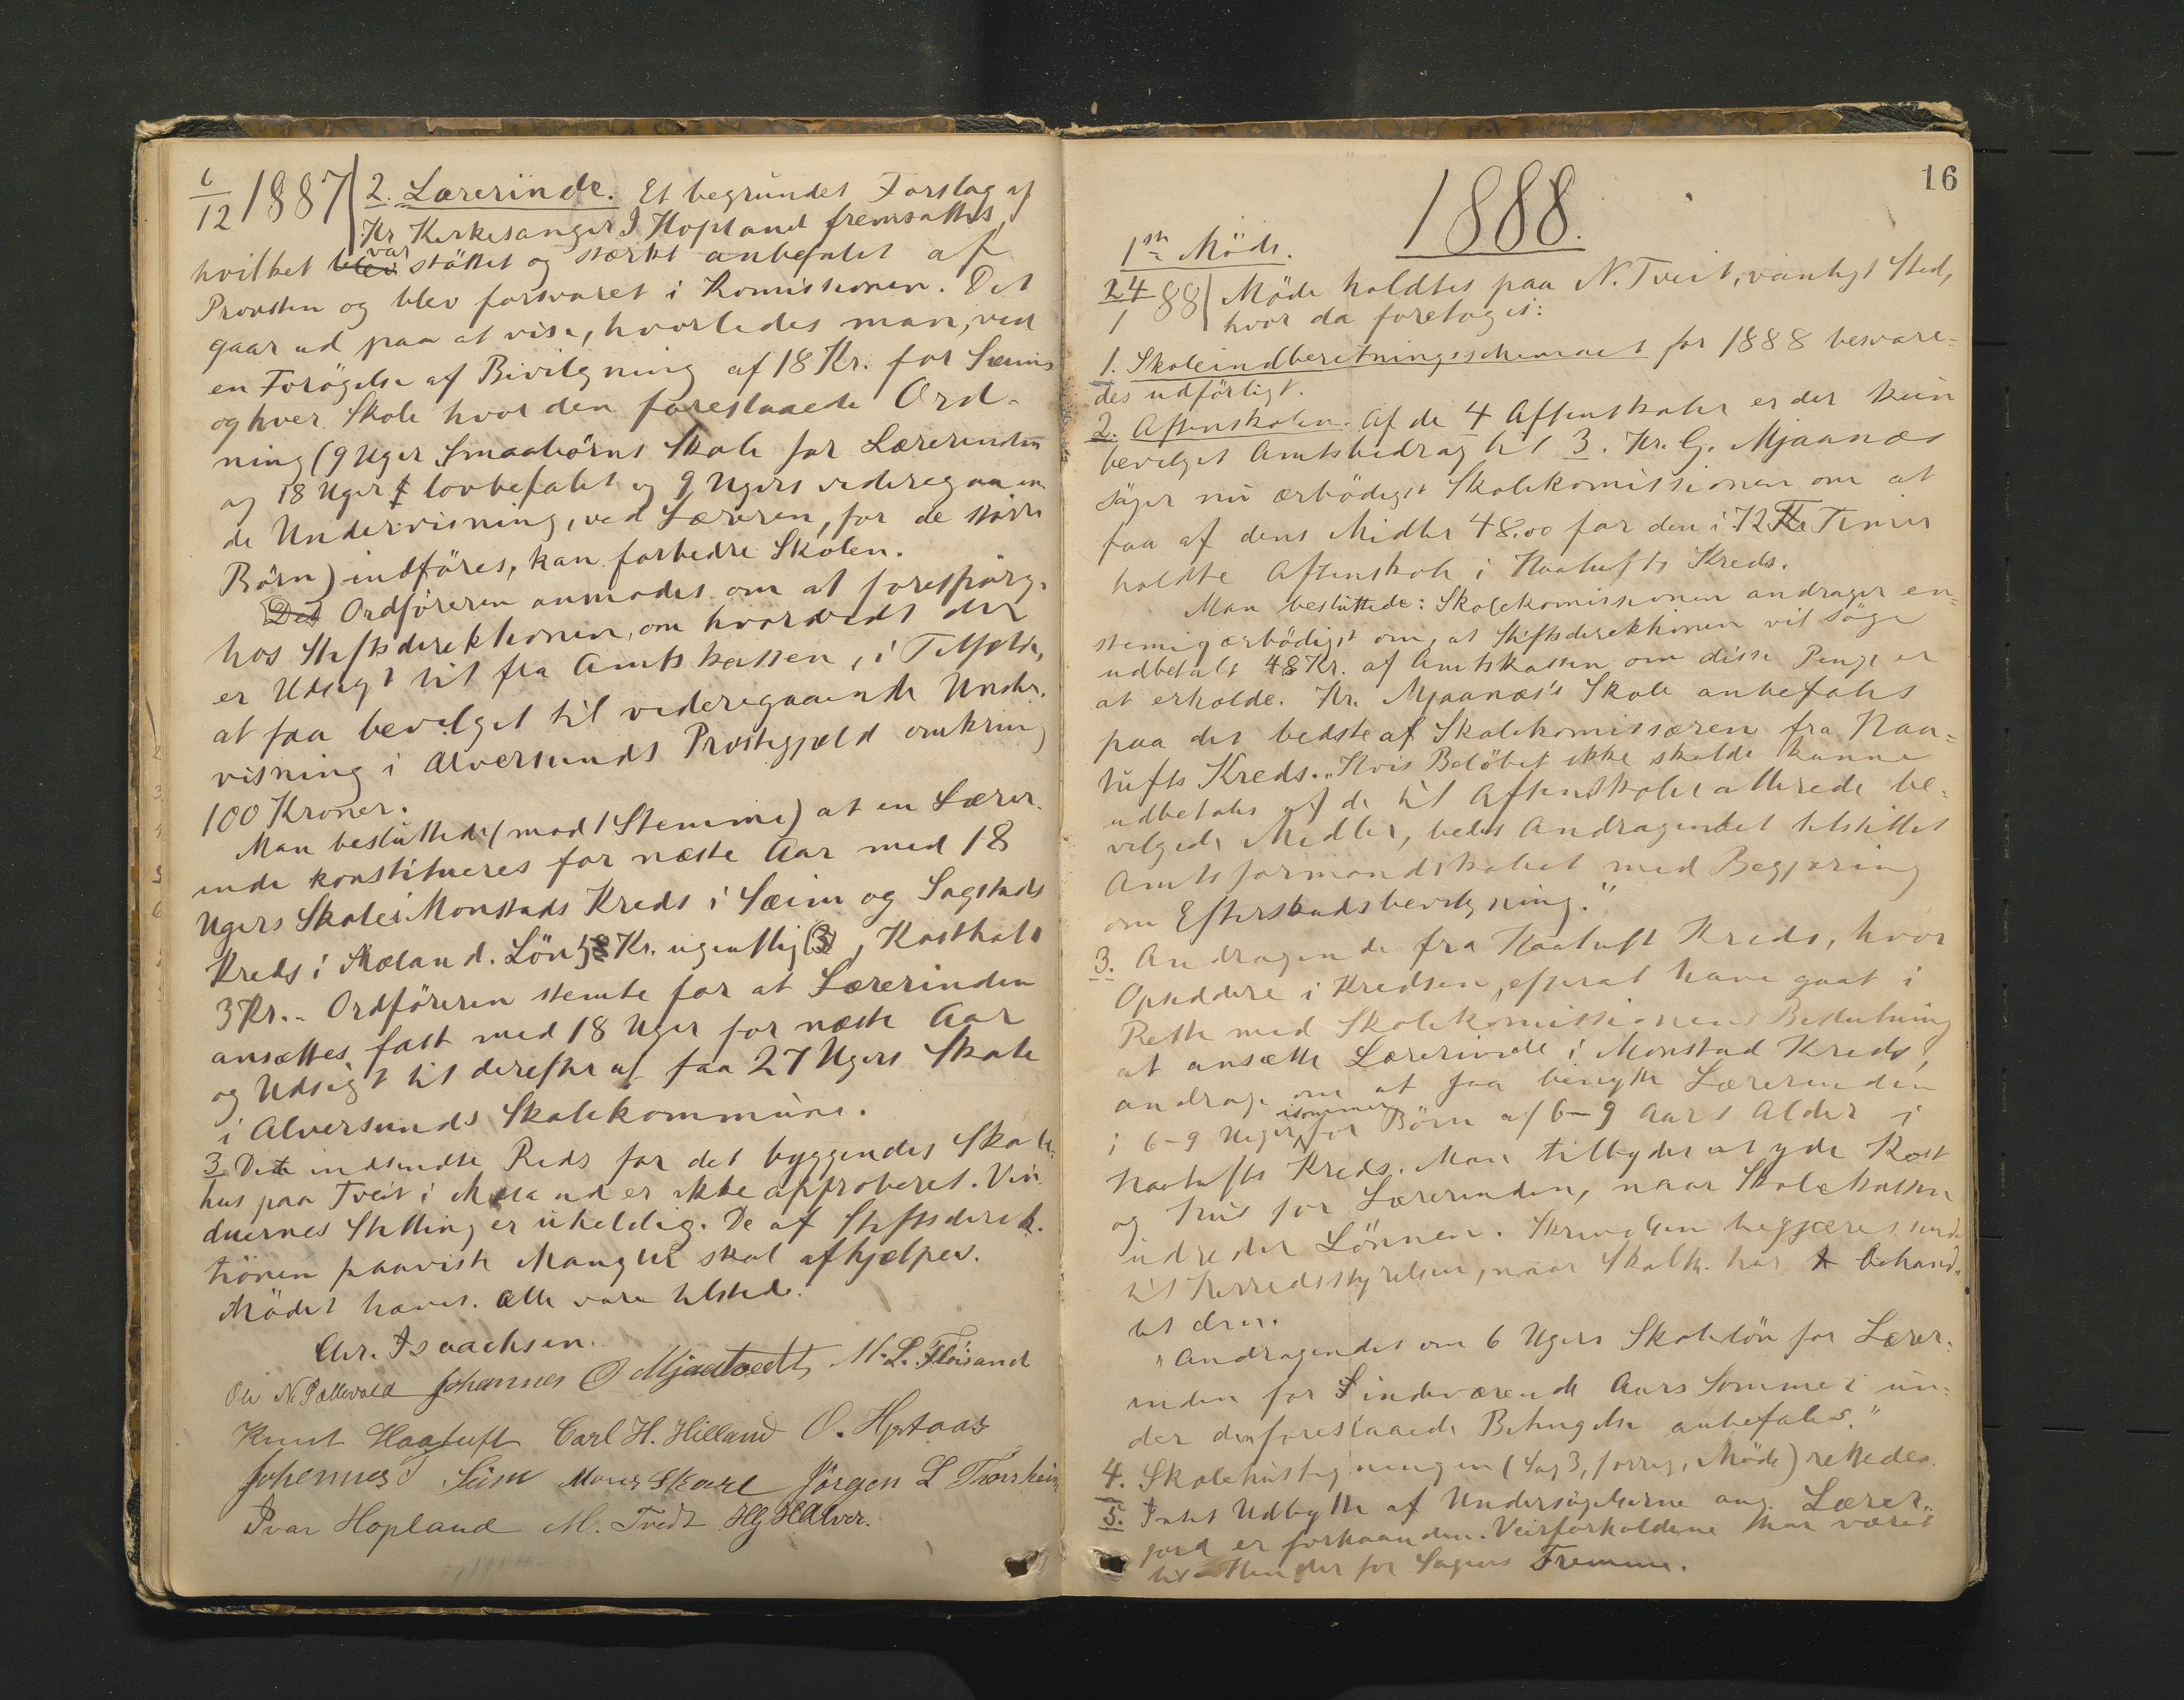 6/12 1887 2. Lærerinde. Et begrundet Forslag af
Hr Kirkesanger I Hopland fremsattes,
hvilket blev var støttet og stærkt anbefalet af
Provsten og blev forsvaret i Komissionen. Det
gaar ud paa at vise, hvorledes man, ved
en Forøgelse af Bevilgning af 18 Kr. for Sæims
og hver Skole hvor den foreslaaede Ord-
ning (9 Uger Smaabørns Skole for Lærerinden
og 18 Uger lovbefalet og 9 Ugers videregaaen
de Undervisning, ved Læreren, for de større
Børn) indføres, kan forbedre Skolen.
Det Ordføreren anmodes om at forespørge
hos Stiftsdirektionen, om hvorvidt der
er Udsigt til fra Amtskassen, i Tilfælde,
at faa bevilget til videregaaende Under-
visning i Alversunds Præstegjæld omkring
100 Kroner.
Man besluttede (mod 1 Stemme) at en Lærer-
inde konstitueres for næste Aar med 18
Ugers Skole i Monstads Kreds i Sæim og Sagstads
Kreds i Mæland. Løn 5 Kr. ugentlig (3), Kosthold
3 Kr. Ordføreren stemte for at Lærerinden
ansættes fast med 18 Uger for næste Aar
og Udsigt til derefter at faa 27 Ugers Skole
i Alversunds Skolekommune.
3. Det indsendte Rids for det byggendes Skole-
hus paa Tveit i Mæland er ikke approberet. Vin-
duernes Stilling er uheldig. De af Stiftsdirek-
tionen paaviste Mangler skal afhjælpes.
Mødet hævet. Alle vare tilstede.
Chr. Isaachsen.
Ole N. Pallevold Johannes O Mjaatvedt M. L. Fløisand
Knut Haatuft Carl H. Hilland O. Hjrtaas
Johannes T Seim Mons Skare Jørgen L Thorsheim
Ivar Hopland M. Tvedt HHAlver.
16
1888.
1ste Møde.
24/1 88 Møde holdtes paa N. Tveit, vanligt Sted,
hvor da foretoges:
1. Skoleindberetningsschemaet for 1888 besvare-
des udførligt.
2. Aftenskolen. Af de 4 Aftenskoler er der kun
bevilget Amtsbidrag til 3. Hr. G. Mjaanæs
søger nu ærbødigst Skolekomissionen om at
faa af dens Midler 48.00 for den i 72 Timer
holdte Aftenskole i Haatufts Kreds.
Man besluttede: Skolekomissionen andrager en-
stemig ærbødigst om, at Stiftsdirektionen vil søge
udbetalt 48 Kr. af Amtskassen om disse Penge er
at erholde. Hr. Mjaanæs's Skole anbefales
paa det bedste af Skolekomissæren fra Haa-
tufts Kreds. "Hvis Beløbet ikke skulde kunne
udbetales af de til Aftenskoler allerede be-
vilgede Midler, bedes Andragendet tilstillet
Amtsformandskabet med Begjæring
om Efterskudsbevilgning."
3. Andragende fra Haatuft Kreds, hvor
Opsiddere i Kredsen, efterat have gaat i
Rette med Skolekomissionens Beslutning
at ansætte Lærerinde i Monstad Kreds,
andrage om at faa benytte Lærerinden
i 6-9 Uger isommer for Børn af 6-9 Aars Alder i
Haatufts Kreds. Man tilbyder at yde Kost
og Hus for Lærerinden, naar Skolekassen
udreder Lønnen. Skrivelsen begjæres sendt
til Herredsstyrelsen, naar Skolek. har behand-
let den.
"Andragendet om 6 Ugers Skoleløn for Lærer-
inden for indeværende Aars Sommer un-
der den foreslaaede Betingelse anbefales."
4. Skolehustegningen (Sag 3, forrig. Møde) rettedes.
5. Intet Udbytte af Undersøgelserne ang. Lærer-
jord er forhaanden. Veirforholdene har været
til Hinder for Sagens Fremme.